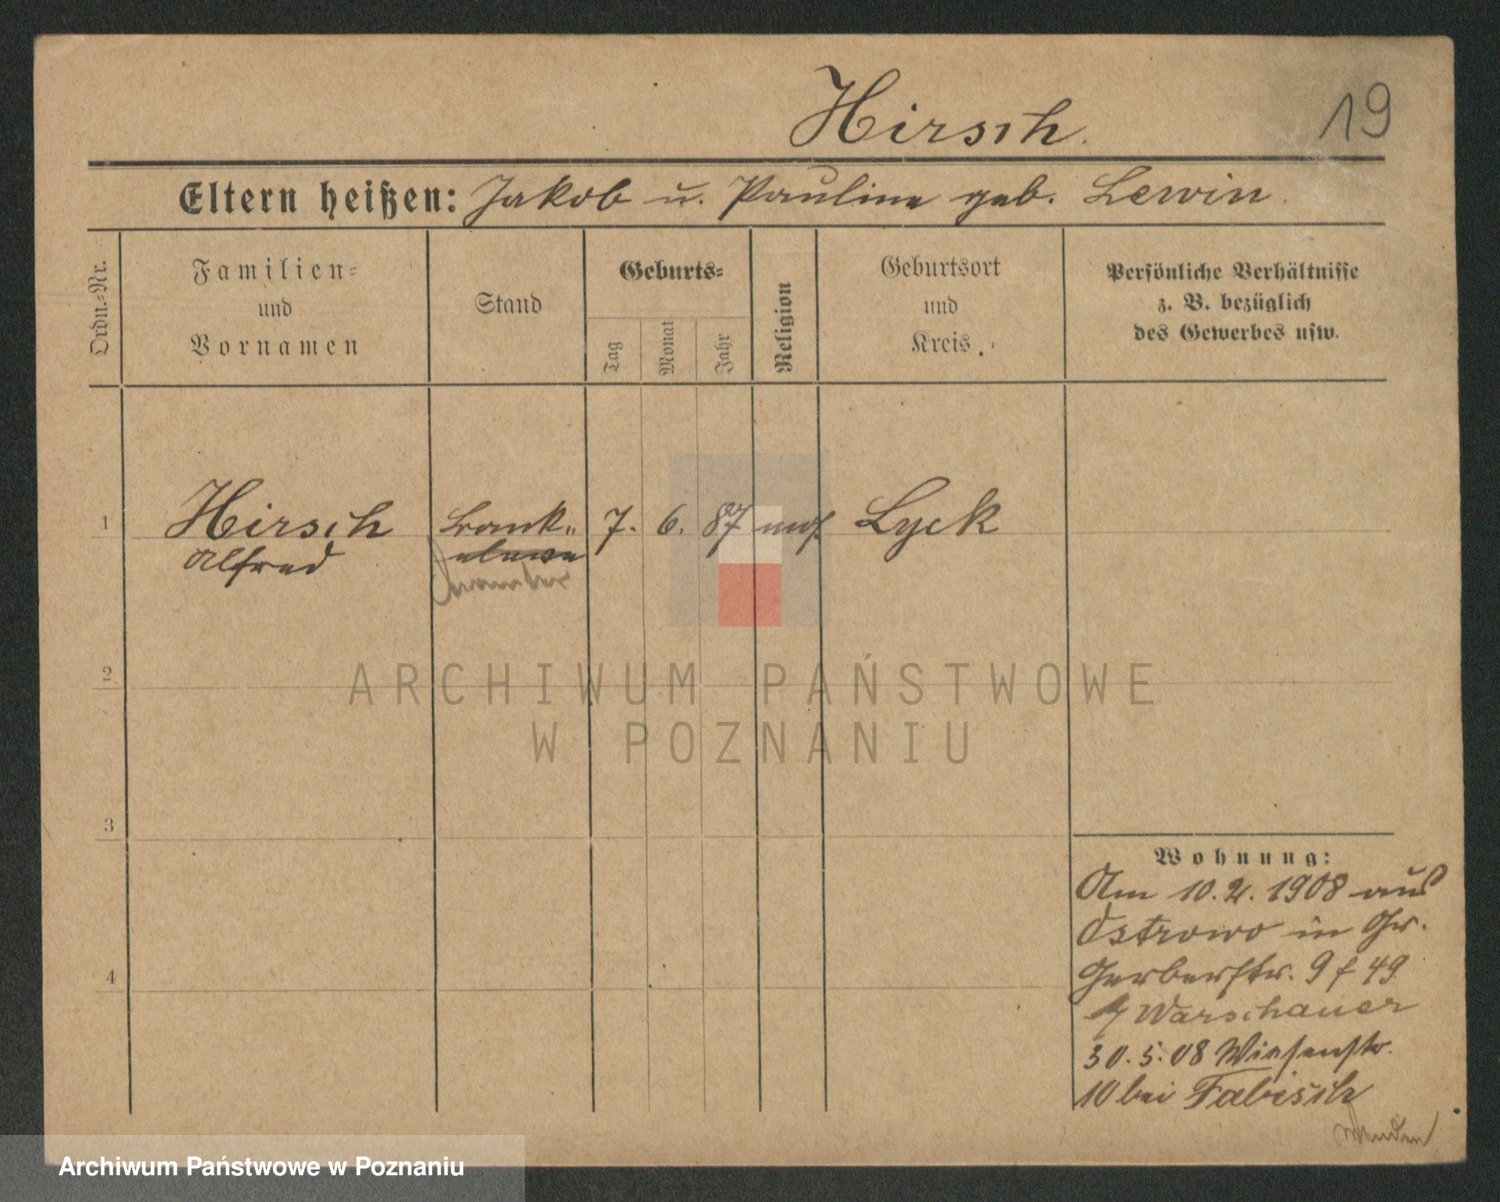 Hirsch
19
Eltern heißen: Jakob u. Pauline geb. Lewin.
Ordn.-Nr.
Familien-
und
Vornamen
Stand
Geburts-
Tag
Monat
Jahr
Religion
Geburtsort
und
Kreis.
Persönliche Verhältnisse
z. B. bezüglich
des Gewerbes usw.
1
Hirsch
Alfred
Bank-
beamter
7. 6. 87 mos.
Lyck
2
3
4
Wohnung:
Am 10.2.1908 aus
Ostrowo in Gr.
Gerberstr. 9 f 49
Warschauer
30.5.08 Wiesenstr.
10 bei Fabisch
wenden
ARCHIWUM PAŃSTWOWE
W POZNANIU
Archiwum Państwowe w Poznaniu